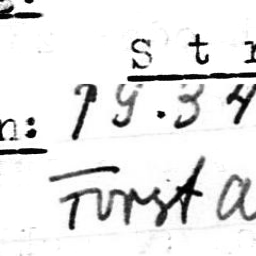 S t r
n: 19.34
Forst a